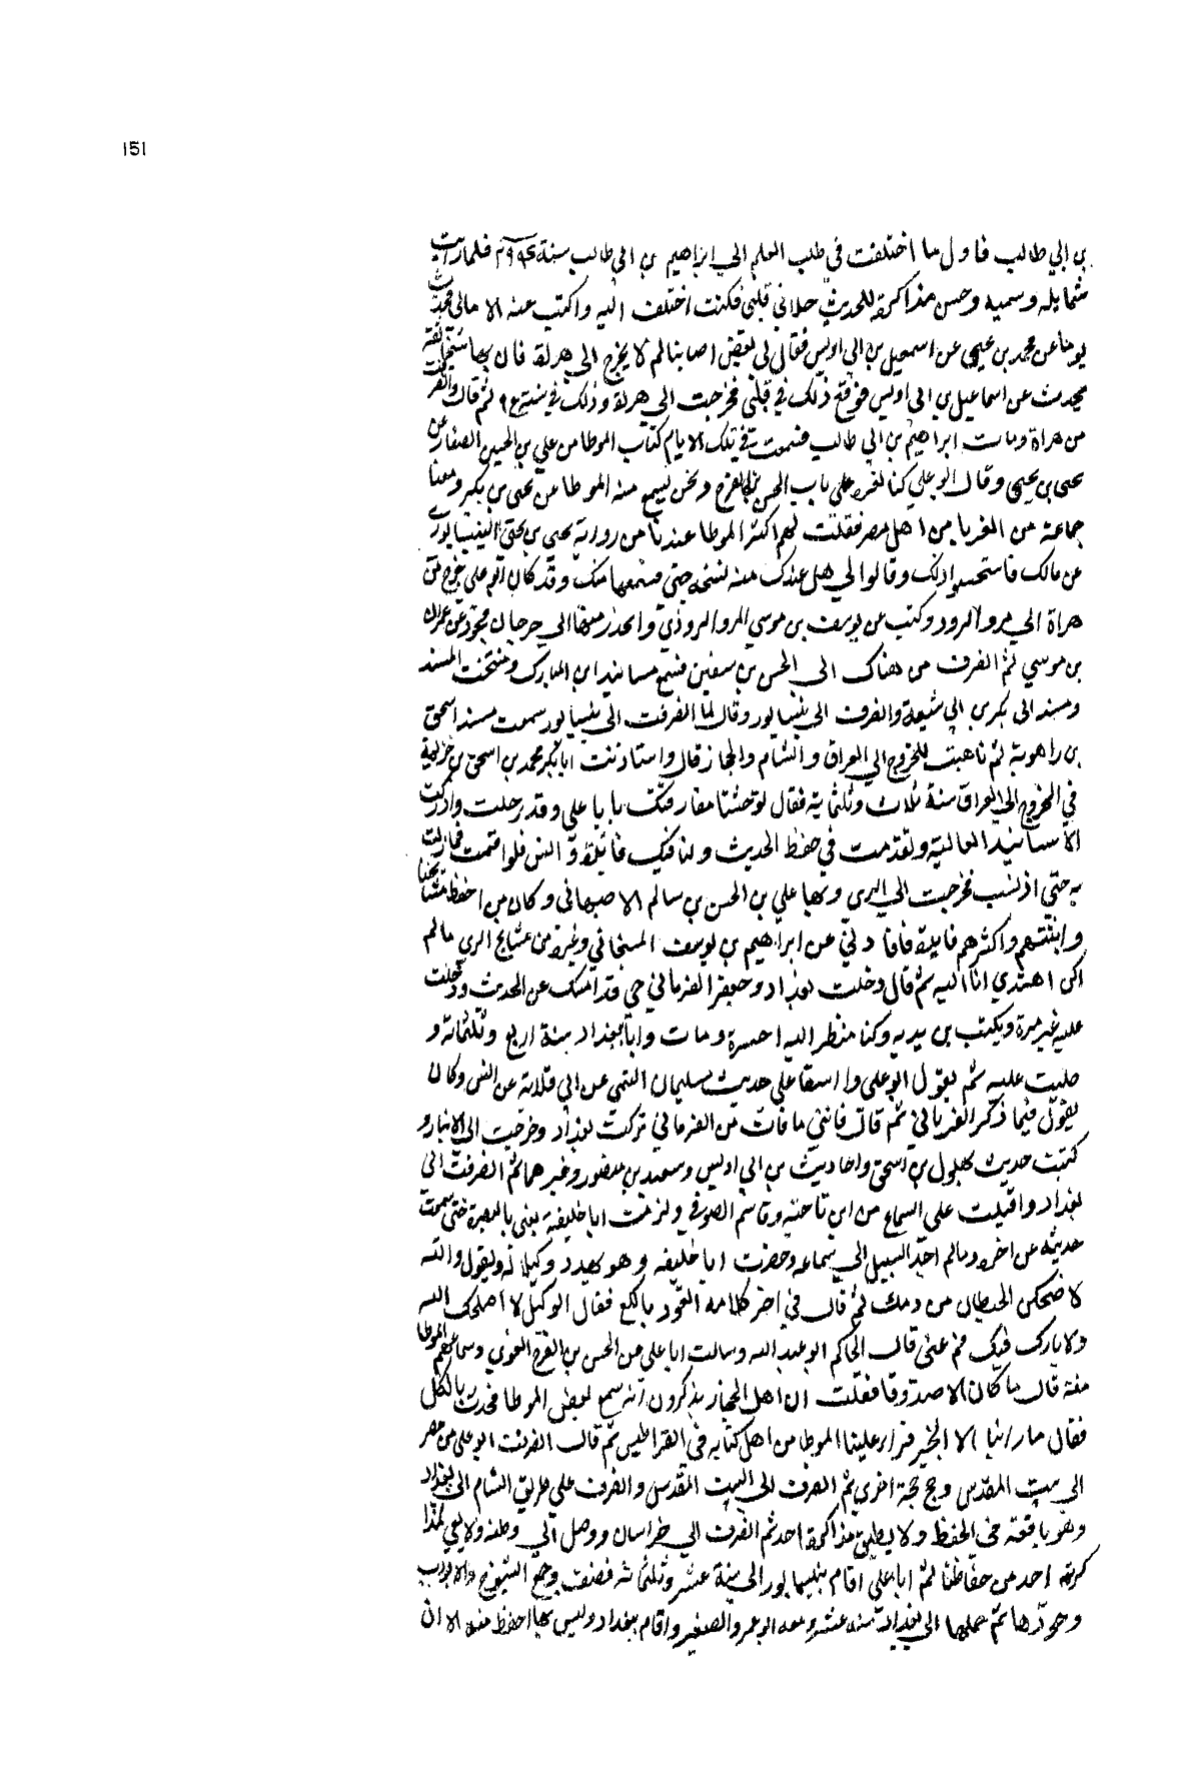 ١٥١
بن ابي طالب فاول ما اختلفت في طلب العلم الي ابراهيم بن ابي طالب سنة فلما رايت
شمايله وسمته وحسن مذاكرته للحديث حلاني قلبي فكنت اختلف اليه واكتب عنه الامالي فحدث
يوما عن محمد بن يحيى عن اسمعيل بن ابي اويس فقال لي بعض اصحابنا لم لا يخرج الى هراة فان بها شيخا ثقة
يحدث عن اسماعيل بن ابي اويس فوقع ذلك في قلبي فخرجت الى هراة وذلك في سنة ثم قال وانصرفت
من هراة ومات ابراهيم بن ابي طالب فسمعت في تلك الايام كتاب الموطا من علي بن الحسين الصفار عن
يحيى بن يحيى وقال ابو علي كنا نقرء على باب الحسن بن الفرج ونحن نسمع منه الموطا عن يحيى بن بكير ومعنا
جماعة من الغربا من اهل مصر فقلت لهم اكثر الموطا عندنا من رواية يحيى بن يحيى النيسابوري
عن مالك فاستحسنوا ذلك وقالوا لي هل عندك منه نسخة حتى نسمعها منك وقد كان ابو علي خرج من
هراة الي مرو الرود وكتب عن يوسف بن موسي المرو الروذي وانحدر منها الى جرجان فجود عن عمران
بن موسي ثم انصرف من هناك الى الحسن بن سفين فسمع مسانيد ابن المبارك ومنتخب المسند
ومسند ابي بكر بن ابي شيبة وانصرف الى نيسابور وقال لما انصرفت الى نيسابور سمعت مسند اسحق
بن راهوية ثم تاهبت للخروج الى العراق والشام والحجاز قال واستاذنت ابا بكر محمد بن اسحق بن خزيمة
في الخروج الى العراق سنة ثلاث وثلثماية فقال توحشنا مفارقتك يا با علي وقد رحلت وادركت
الاسانيد العالية وتقدمت في حفظ الحديث ولنا فيك فائدة وانس فلو اقمت فما زلت
به حتى اذن لي فخرجت الى الري وبها علي بن الحسن بن سالم الاصبهاني وكان من احفظ مشايخنا
واثبتهم واكثرهم فايدة فافادني عن ابراهيم بن يوسف وغيره من مشايخ الري ما لم
اكن اهتدي انا اليه ثم قال دخلت بغداد وجعفر الفريابي حي قد امسك عن الحديث ودخلت
عليه غير مرة وبكيت بين يديه وكنا ننظر اليه حسرة ومات وانا ببغداد سنة اربع وثلثماية و
صليت عليه ثم يقول ابو علي وا اسفا علي حديث سليمان التيمي عن ابي قلابة عن انس وكان
يقول فيما ذكر الفريابي ثم قال فاتني ما فات من الفريابي تركت بغداد وخرجت الى الانبار و
كتبت حديث بهلول بن اسحق واحاديث بن ابي اويس وسعيد بن منصور وغيرهما ثم انصرفت الى
بغداد واقبلت على السماع من ابن ناجية وقاسم الصوفي ولزمت ابا خليفة يعني بالبصرة حتى سمعت
حديثه عن اخره وما لم اجد السبيل الى سماعه وحضرت ابا خليفه وهو يهدد وكيلا له ويقول والله
لاضحكن الحيطان من دمك ثم قال في اخر كلامه القود بالكع فقال الوكيل لا اصلحك الله
ولا بارك فيك قم عني قال الحاكم ابو عبد الله وسالت ابا علي عن الحسن بن الفرج الغزي وسماعهم الموطا
منه قال ما كان الا صدوقا فقلت ان اهل الحجاز يذكرون انه سمع بعض الموطا فحدث بالكل
فقال ما راينا الا الخير قرا علينا الموطا من اصل كتابه في القراطيس ثم قال انصرفت ابو علي من مصر
الى بيت المقدس وحج حجة اخرى ثم انصرف الى البيت المقدس وانصرف علي طريق الشام الى بغداد
وهو باقعة في الحفظ ولا يطيق مذاكرة احد ثم انصرف الي خراسان ووصل الي وطنه ولا يفي بمذا
كرته احد من حفاظنا ثم ابا علي اقام بنيسابور الى سنة عشر وثلثماية فصنف وجمع الشيوخ والابواب
وجودها ثم حملها الى بغداد سنة عشر ومعه ابو عمرو الصغير واقام ببغداد وليس بها احفظ منه الا ان